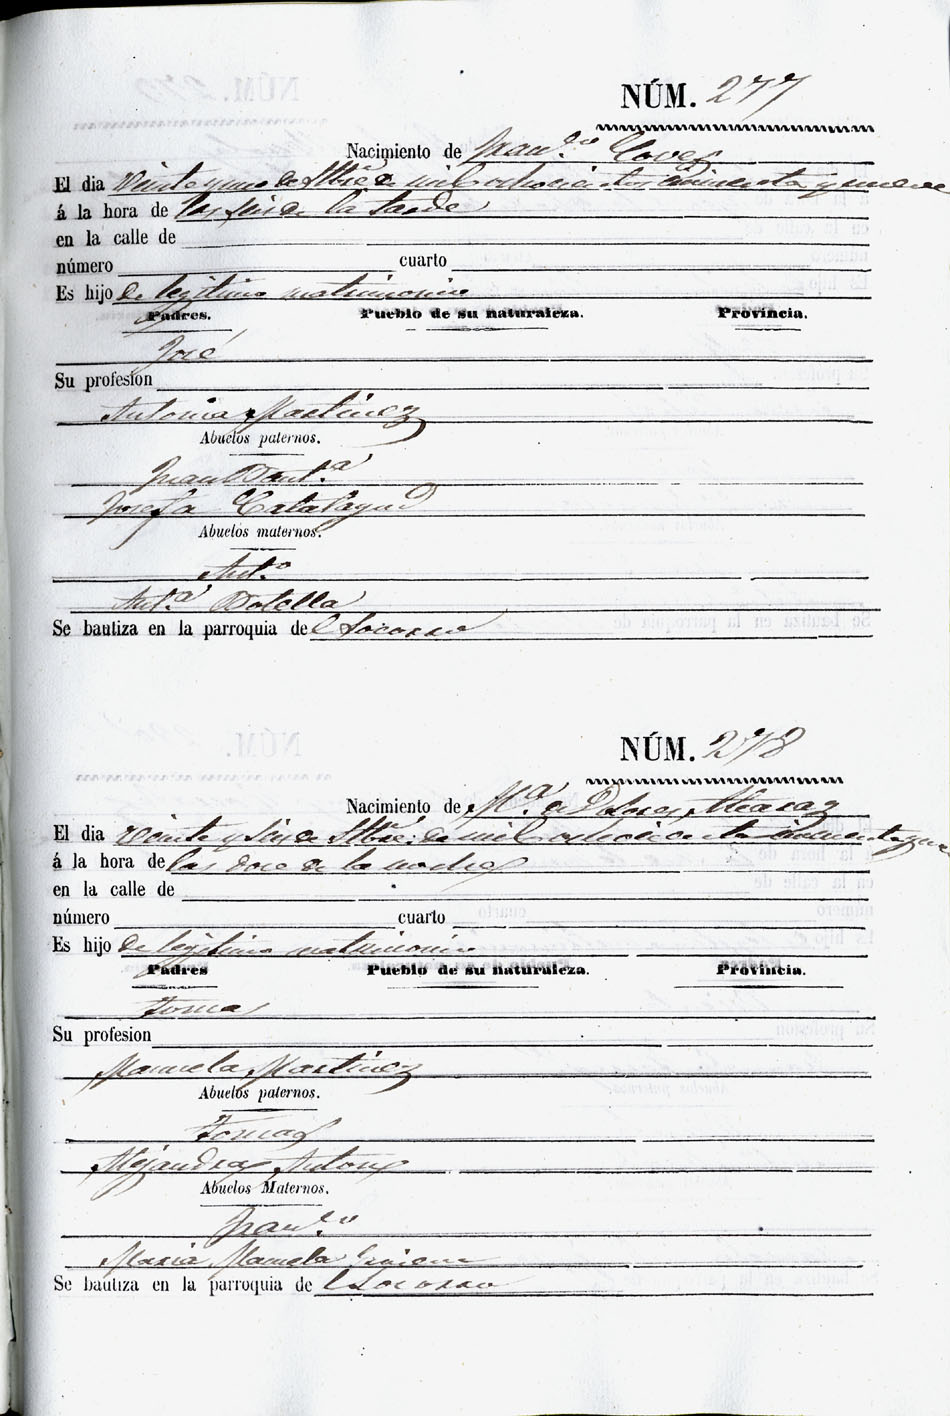 NÚM. 277
Nacimiento de Fran.co Cover
El dia veinte y uno de Stbre de mil ochocientos cincuenta y nueve
á la hora de las seis de la tarde
en la calle de
número cuarto
Es hijo de legitimo matrimonio
Padres. Pueblo de su naturaleza. Provincia.
José
Su profesion
Antonia Martinez
Abuelos paternos.
Juan
Josefa Calatayud
Abuelos maternos.
Ant.o
Ant.a Botella
Se bautiza en la parroquia de l Socorro
NÚM. 278
Nacimiento de M.a de Dolores Alcaraz
El dia veinte y seis de Stbre. de mil ochocientos cincuenta y nue
á la hora de las doce de la noche
en la calle de
número cuarto
Es hijo de legitimo matrimonio
Padres Pueblo de su naturaleza. Provincia.
Tomas
Su profesion
Manuela Martinez
Abuelos paternos.
Tomas
Alejandra Anton
Abuelos Maternos.
Fran.co
Maria Manuela
Se bautiza en la parroquia de l Socorro